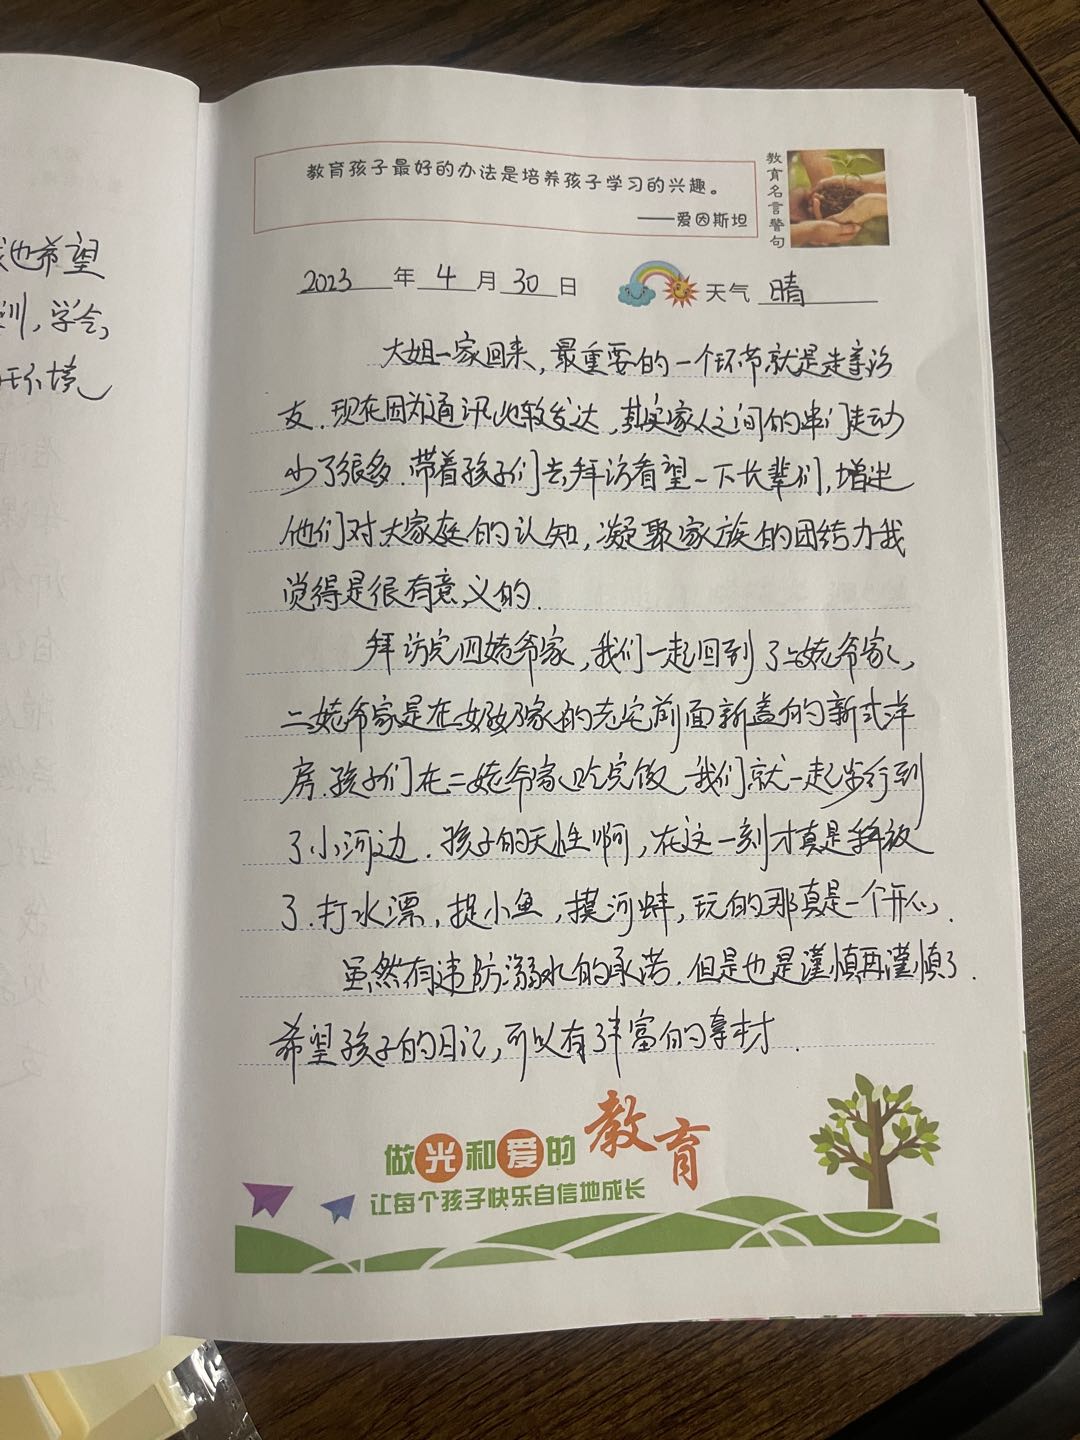 我也希望
训，学会
环境
教育孩子最好的办法是培养孩子学习的兴趣。
——爱因斯坦
教育名言警句
2023年4月30日 天气 晴
大姐一家回来，最重要的一个环节就是走亲访
友.现在因为通讯比较发达，其实家人之间的串门走动
少了很多.带着孩子们去拜访看望一下长辈们，增进
他们对大家庭的认知，凝聚家族的团结力我
觉得是很有意义的.
拜访完四姥爷家，我们一起回到了二姥爷家，
二姥爷家是在姥姥家的老宅前面新盖的新式洋
房.孩子们在二姥爷家吃完饭 我们就一起步行到
了小河边.孩子的天性啊，在这一刻才真是释放
了.打水漂，捉小鱼，摸河蚌，玩的那真是一个开心.
虽然有违防溺水的承诺.但是也是谨慎再谨慎了.
希望孩子的日记，可以有了丰富的素材.
做光和爱的教育
让每个孩子快乐自信地成长